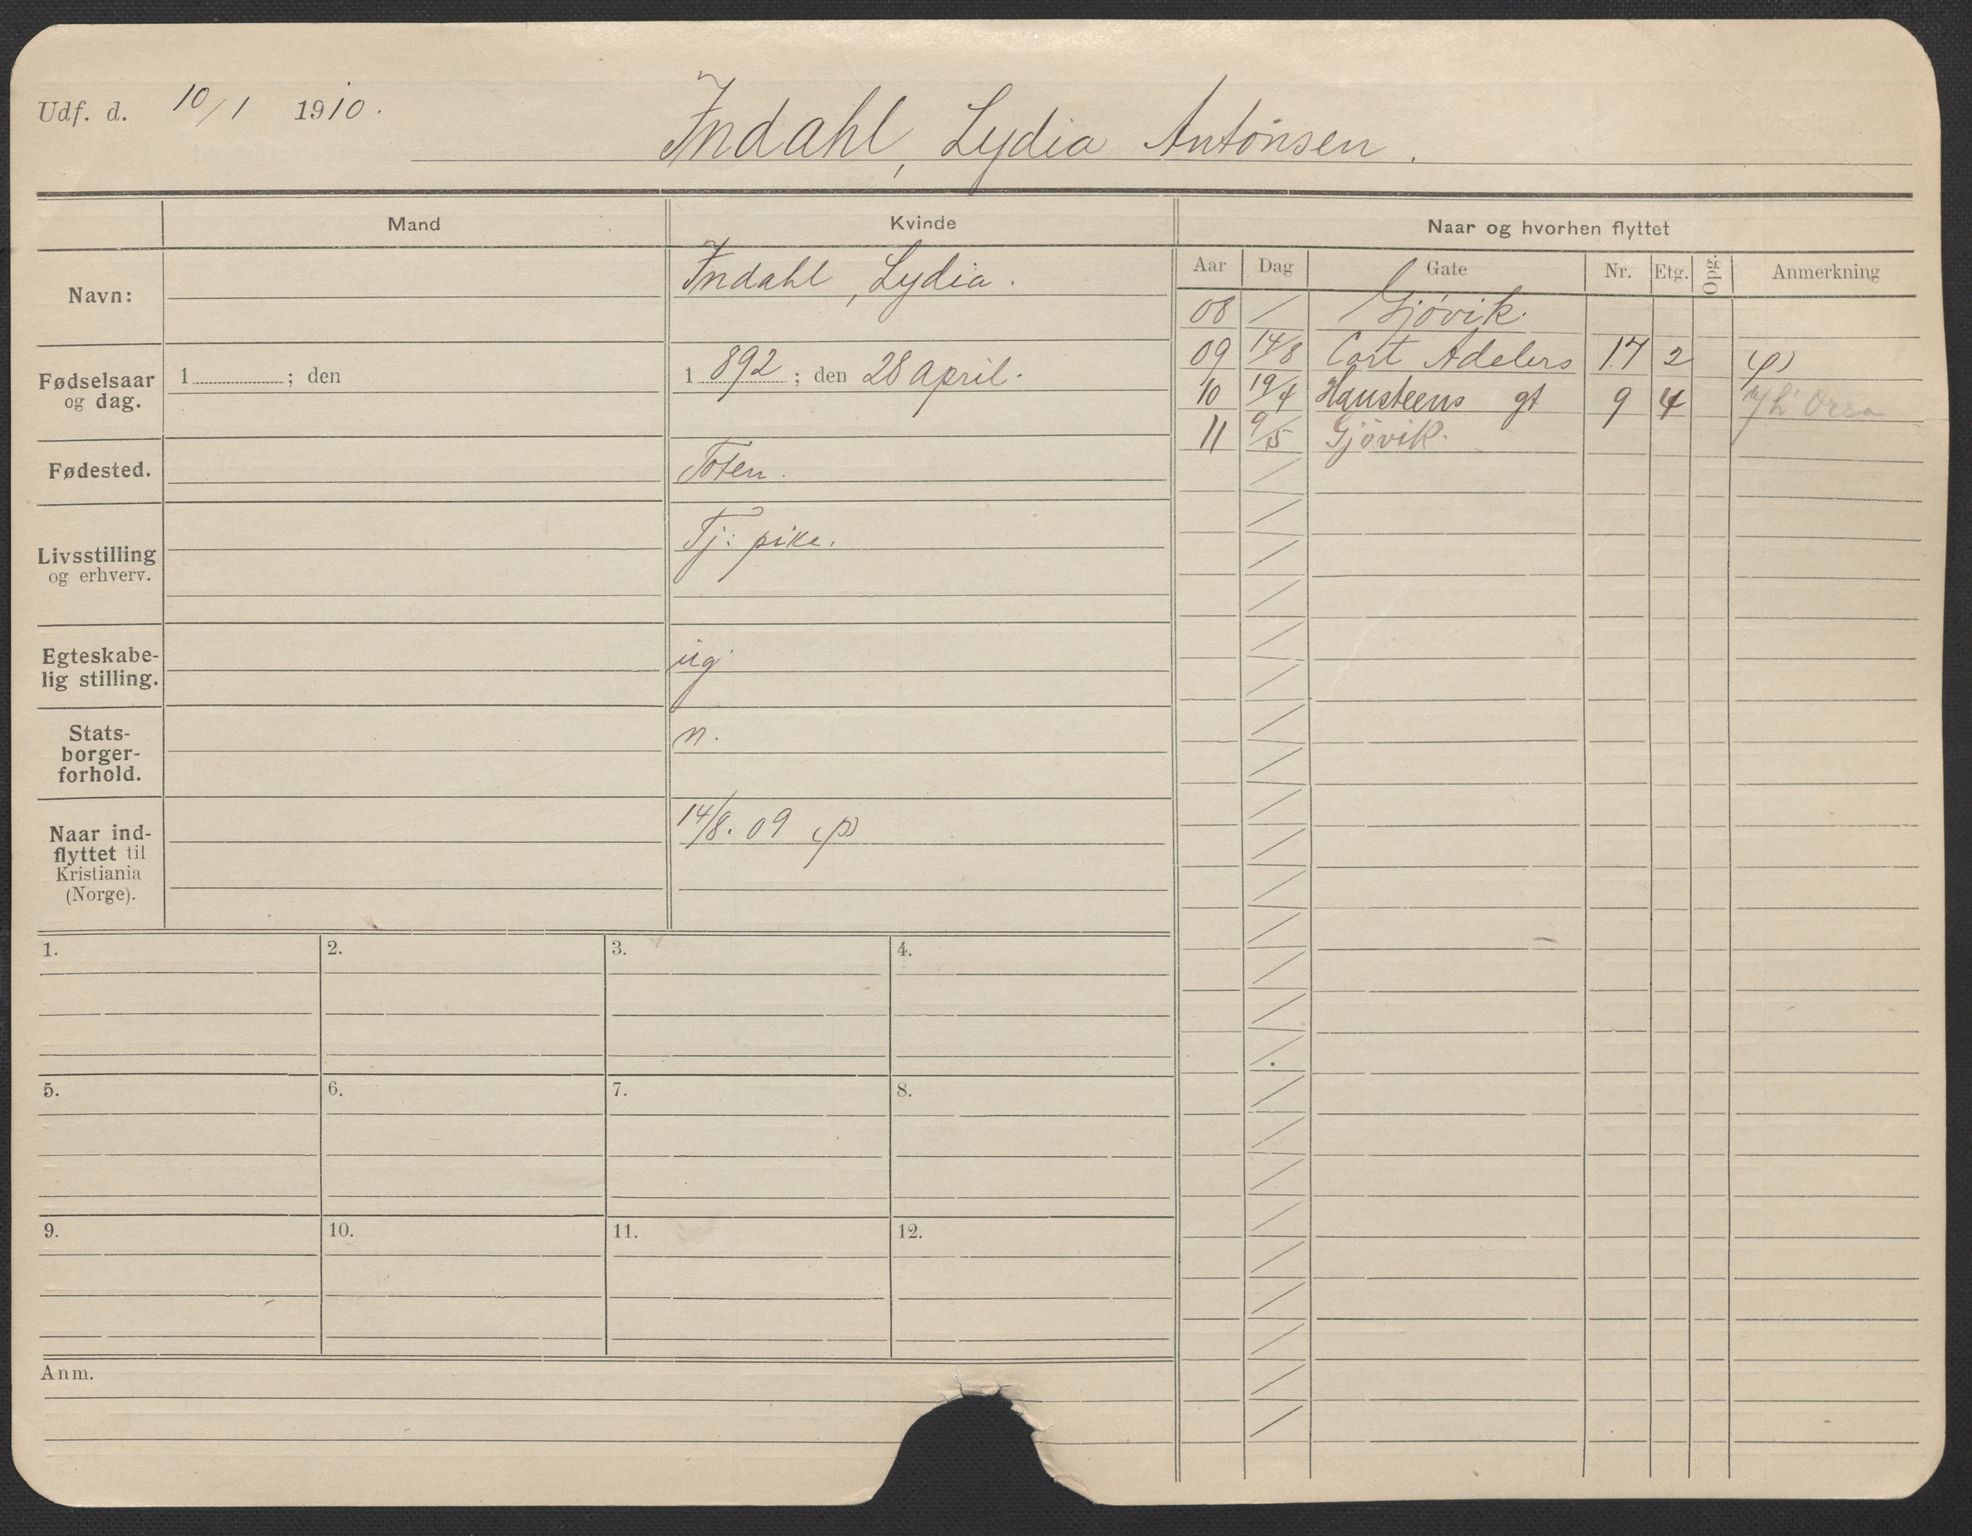 Udf. d. 10/1 1910.
Indahl, Lydia Antonsen.
Mand
Kvinde
Naar og hvorhen flyttet
Navn:
Indahl, Lydia.
Fødselsaar og dag.
1 ; den
1892 ; den 28 april.
Fødested.
Toten.
Livsstilling og erhverv.
Tj: pike.
Egteskabe-
lig stilling.
ug
Stats-
borger-
forhold.
n.
Naar ind-
flyttet til
Kristiania
(Norge).
14/8. 09 (p)
Aar Dag Gate Nr. Etg. Opg. Anmerkning
08 / Gjøvik.
09 14/8 Cort Adelers 17 2 (p)
10 19/4 Hausteens gt 9 4
11 9/5 Gjøvik.
1. 2. 3. 4.
5. 6. 7. 8.
9. 10. 11. 12.
Anm.